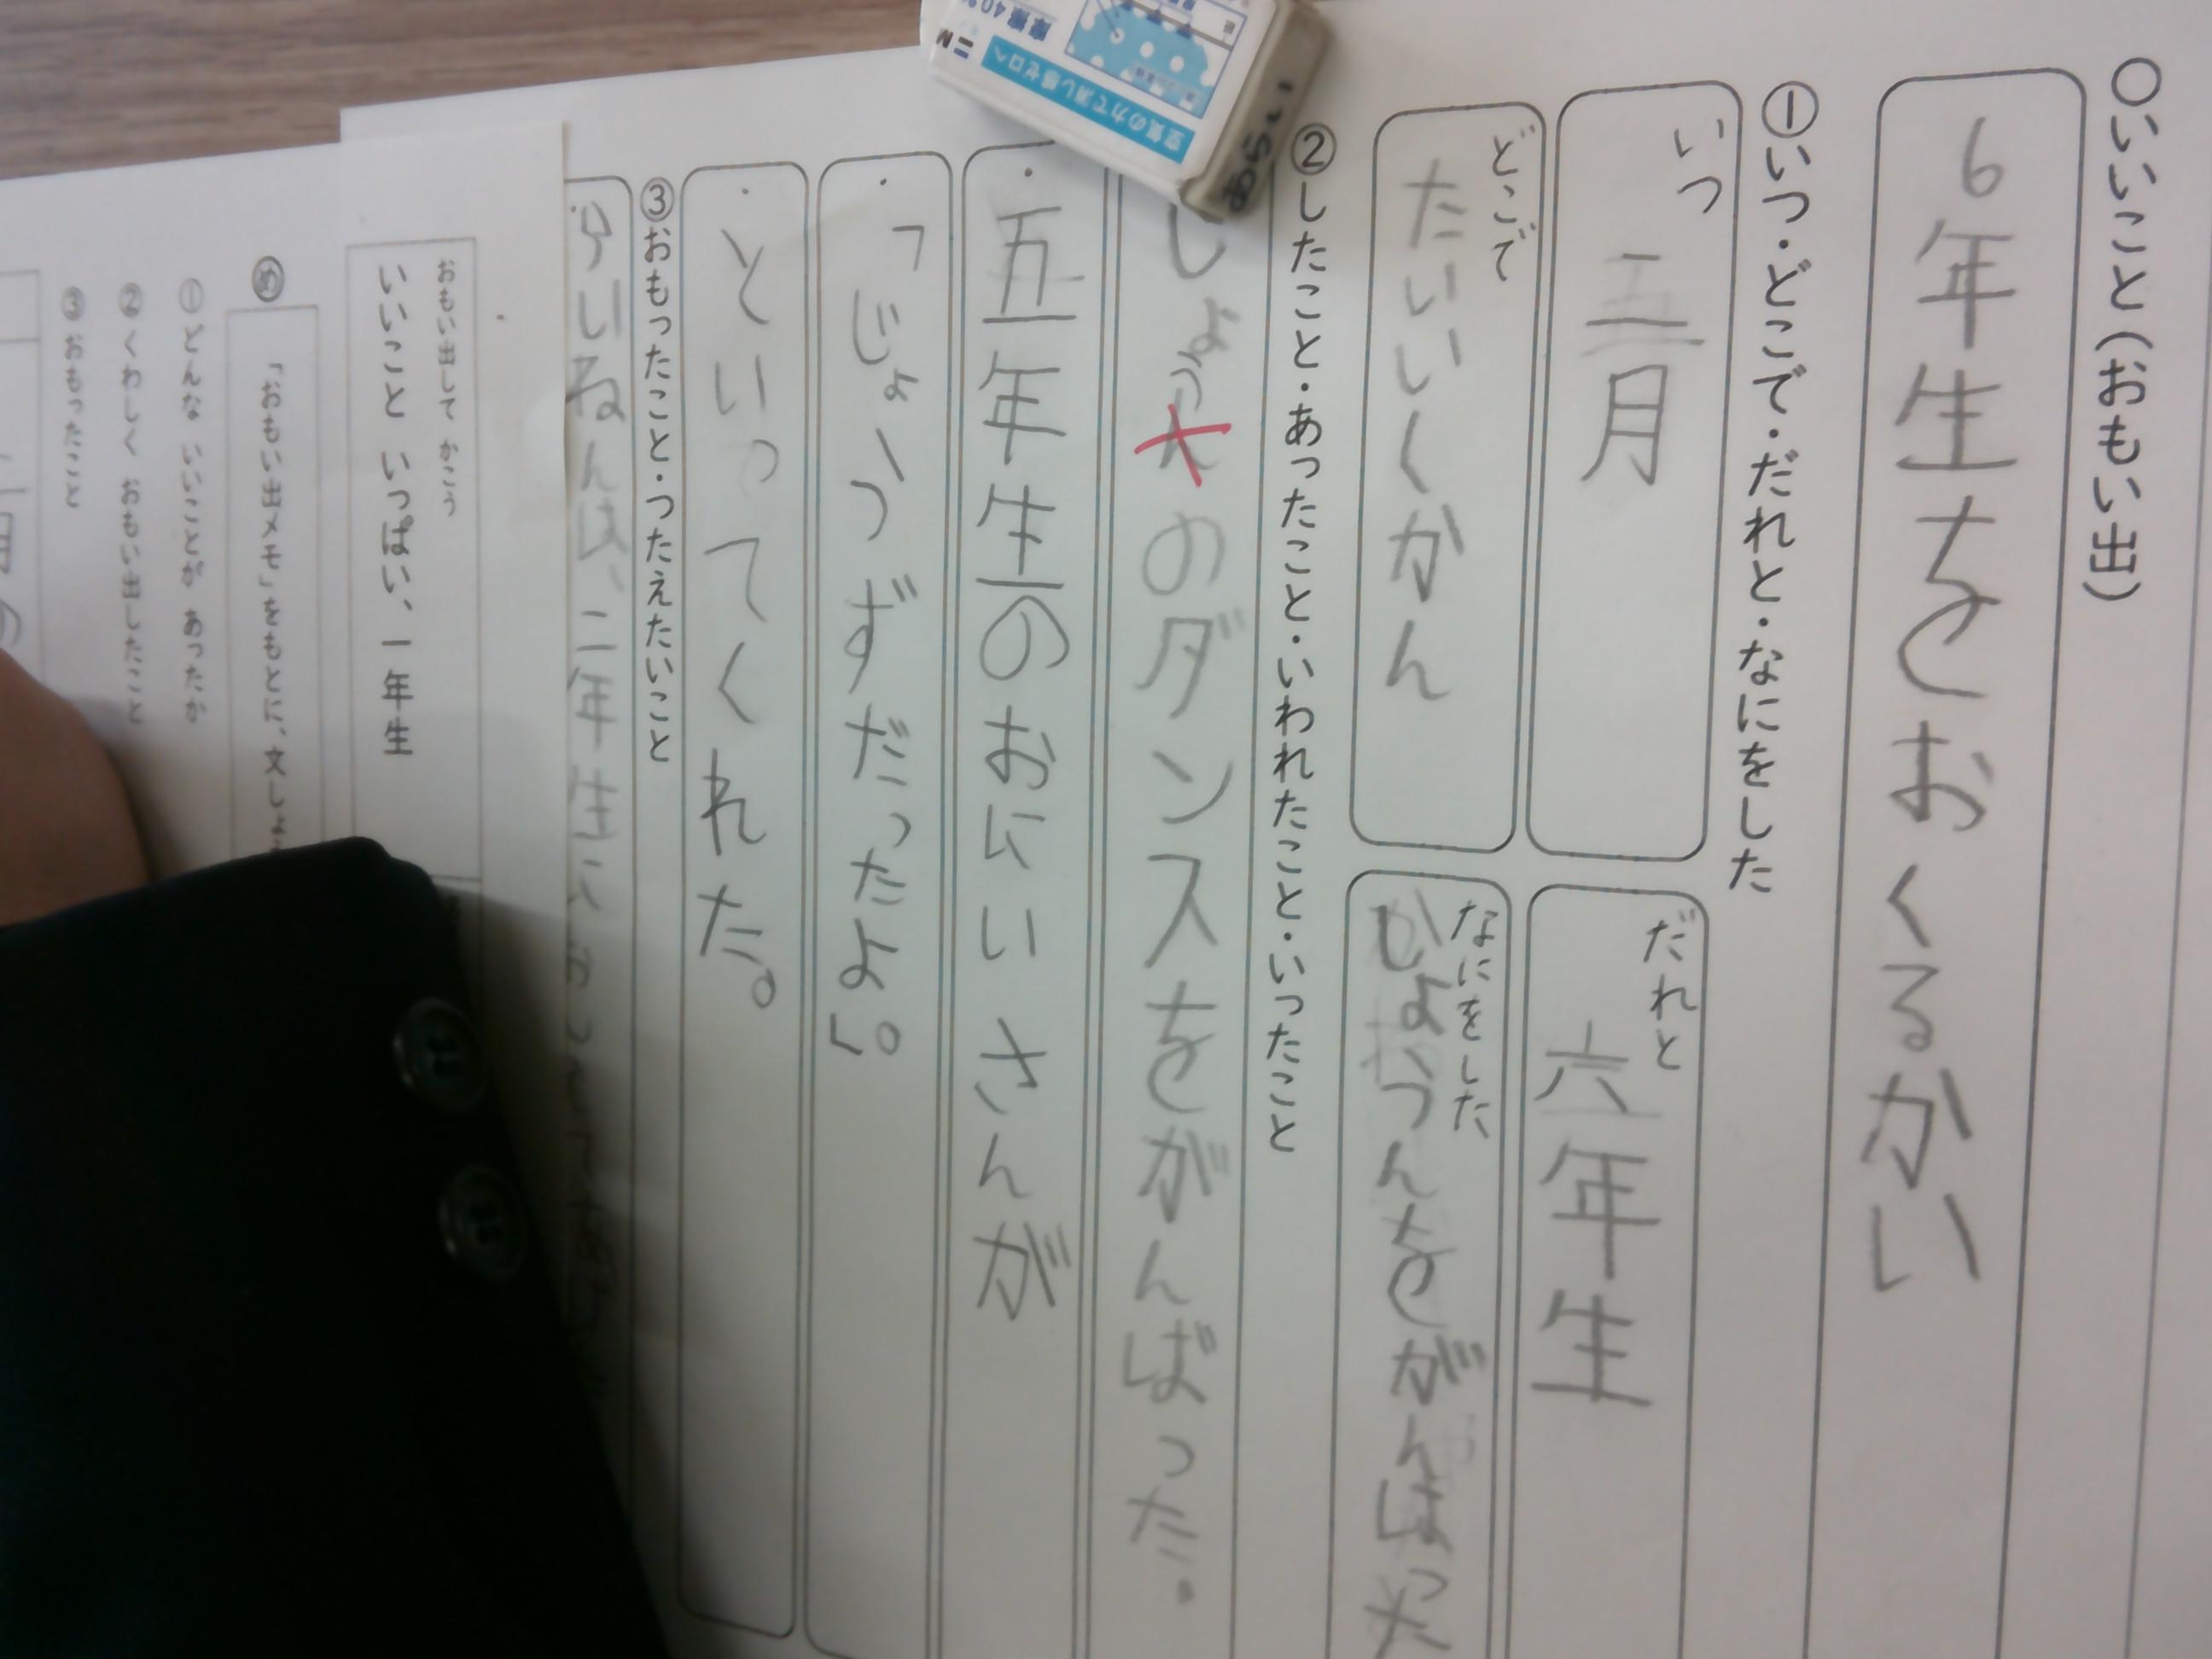 ○いいこと(おもい出)
6年生をおくるかい
①いつ・どこで・だれと・なにをした
いつ
三月
だれと
六年生
どこで
たいいくかん
なにをした
しょうんをがんばった
②したこと・あったこと・いわれたこと・いったこと
しょうんのダンスをがんばった.
・五年生のおにいさんが
・「じょうずだったよ。」
・といってくれた。
③おもったこと・つたえたいこと
らいねんは、二年生
おもい出して かこう
いいこと いっぱい、一年生
め
「おもい出メモ」をもとに、文しょ
①どんな いいことが あったか
②くわしく おもい出したこと
③おもったこと
空気の力で消し感ゼロへ